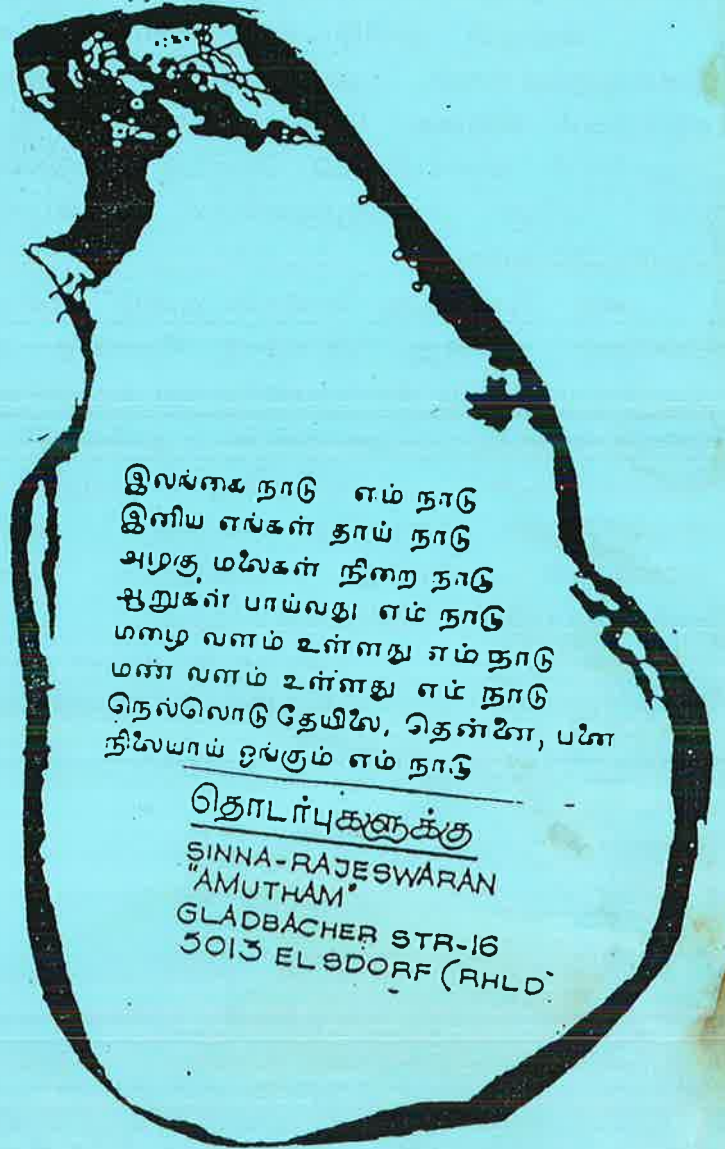 இலங்கை நாடு எம் நாடு
இனிய எங்கள் தாய் நாடு
அழகு மலைகள் நிறை நாடு
ஆறுகள் பாய்வது எம் நாடு
மழை வளம் உள்ளது எம் நாடு
மண் வளம் உள்ளது எம் நாடு
நெல்லொடு தேயிலை, தென்னை, பனை
நிலையாய் ஓங்கும் எம் நாடு
தொடர்புகளுக்கு
SINNA-RAJESWARAN
"AMUTHAM"
GLADBACHER STR-16
5013 ELSDORF (RHLD